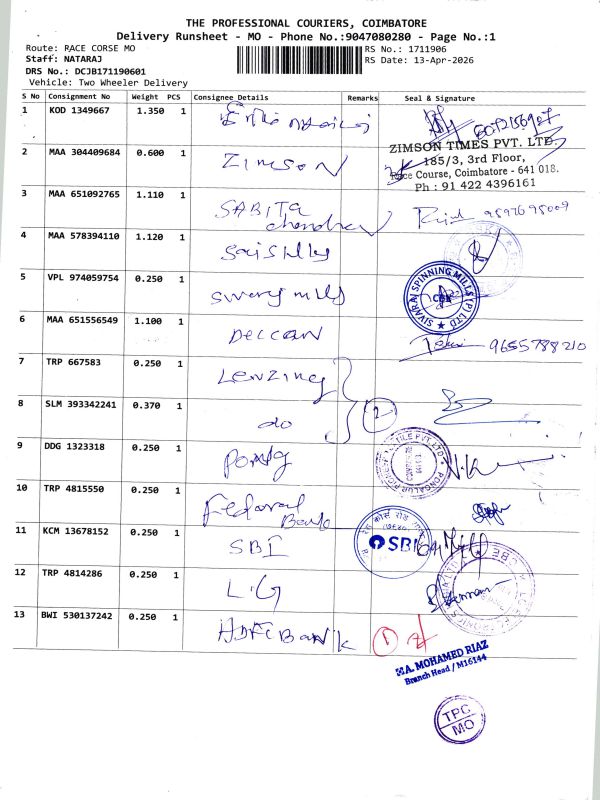 THE PROFESSIONAL COURIERS, COIMBATORE
Delivery Runsheet - MO - Phone No.:9047080280 - Page No.:1
Route: RACE CORSE MO
RS No.: 1711906
Staff: NATARAJ
RS Date: 13-Apr-2026
DRS No.: DCJB171190601
Vehicle: Two Wheeler Delivery
S No Consignment No Weight PCS Consignee Details Remarks Seal & Signature
1 KOD 1349667 1.350 1
2 MAA 304409684 0.600 1 Zimson
ZIMSON TIMES PVT. LTD.
185/3, 3rd Floor,
Race Course, Coimbatore - 641 018.
Ph : 91 422 4396161
3 MAA 651092765 1.110 1 SABITA
chandran
4 MAA 578394110 1.120 1
5 VPL 974059754 0.250 1 Sivaraj mills
SIVARAJ SPINNING MILLS (P) LTD
CBE
6 MAA 651556549 1.100 1 Deccan 9655788210
7 TRP 667583 0.250 1 Lenzing
8 SLM 393342241 0.370 1 do 2
9 DDG 1323318 0.250 1
10 TRP 4815550 0.250 1 Federal
Bank
11 KCM 13678152 0.250 1 SBI
SBI
12 TRP 4814286 0.250 1 L.G
13 BWI 530137242 0.250 1 HDFC Bank 1
MA. MOHAMED RIAZ
Branch Head / M16144
TPC
MO